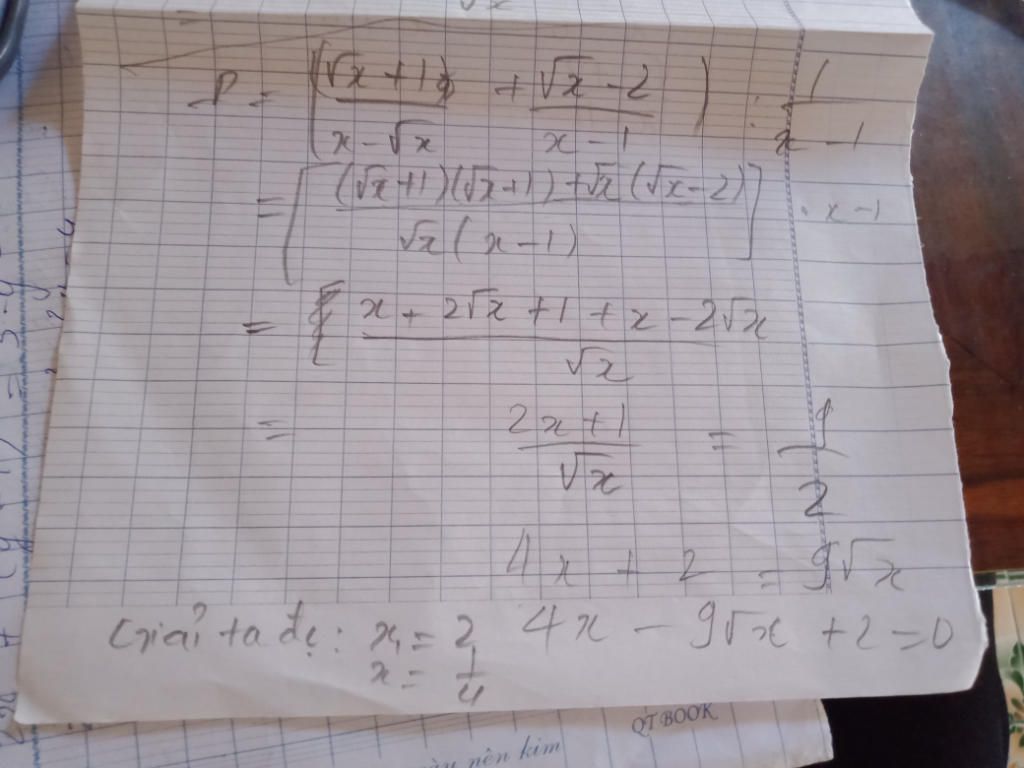 √x
P = ( (√x + 1) / (x - √x) + (√x - 2) / (x - 1) ) : 1 / (x - 1)
= [ ((√x+1)(√x+1) + √x(√x-2)) / (√x(x-1)) ] . x-1
= (x + 2√x + 1 + x - 2√x) / √x
= (2x+1) / √x = 9 / 2
4x + 2 = 9√x
4x - 9√x + 2 = 0
Giải ta đc: x₁ = 2
x = 1/4
QT BOOK
nên kim